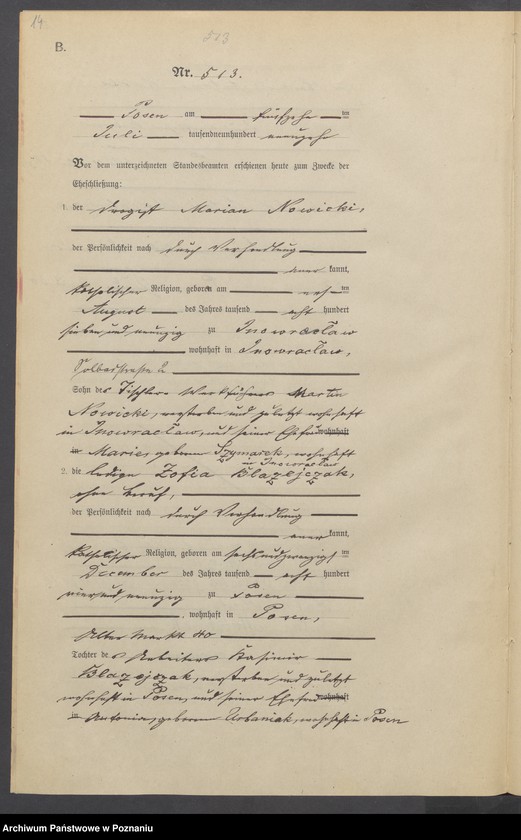 14
513
B.
Nr. 513.
Posen am fünfzehn ten
Juli tausendneunhundert neunzehn
Vor dem unterzeichneten Standesbeamten erschienen heute zum Zwecke der
Eheschließung:
1. der Drogist Marian Nowicki,
der Persönlichkeit nach durch Verhandlung
aner kannt,
katholischer Religion, geboren am ten
August des Jahres tausend acht hundert
siebenundneunzig zu Inowraclaw
wohnhaft in Inowraclaw,
Sohn des Tischlers Werkführers Martin
Nowicki, verstorben und zuletzt wohnhaft
in Inowraclaw, und seiner Ehefrau wohnhaft
in Marie, geboren Szymarek, wohnhaft
in Inowraclaw
2. die ledige Zofia Blazejczak,
ohne Beruf,
der Persönlichkeit nach durch Verhandlung
aner kannt,
katholischer Religion, geboren am sechsundzwanzigsten
December des Jahres tausend acht hundert
vierundneunzig zu Posen
, wohnhaft in Posen,
Alter Markt 40
Tochter des Arbeiters Kasimir
Blazejczak, verstorben und zuletzt
wohnhaft in Posen, und seiner Ehefrau wohnhaft
in Antonie, geborene Urbaniak, wohnhaft in Posen
Archiwum Państwowe w Poznaniu